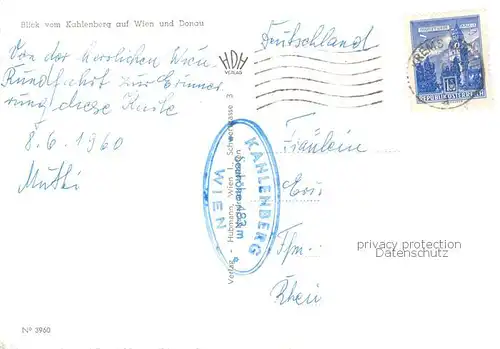 Blick vom Kahlenberg auf Wien und Donau
Von der herrlichen Wien
Rundfahrt zur Erinne-
rung diese Karte
8.6.1960
Mutti
HDH
VERLAG
Deutschland
KREMS
REPUBLIK ÖSTERREICH
Fräulein
privacy protection
Datenschutz
Rhein
KAHLENBERG
Seehöhe 483 m
WIEN
Verlag Hubmann, Wien I., Schwertgasse 3
Nº 3960